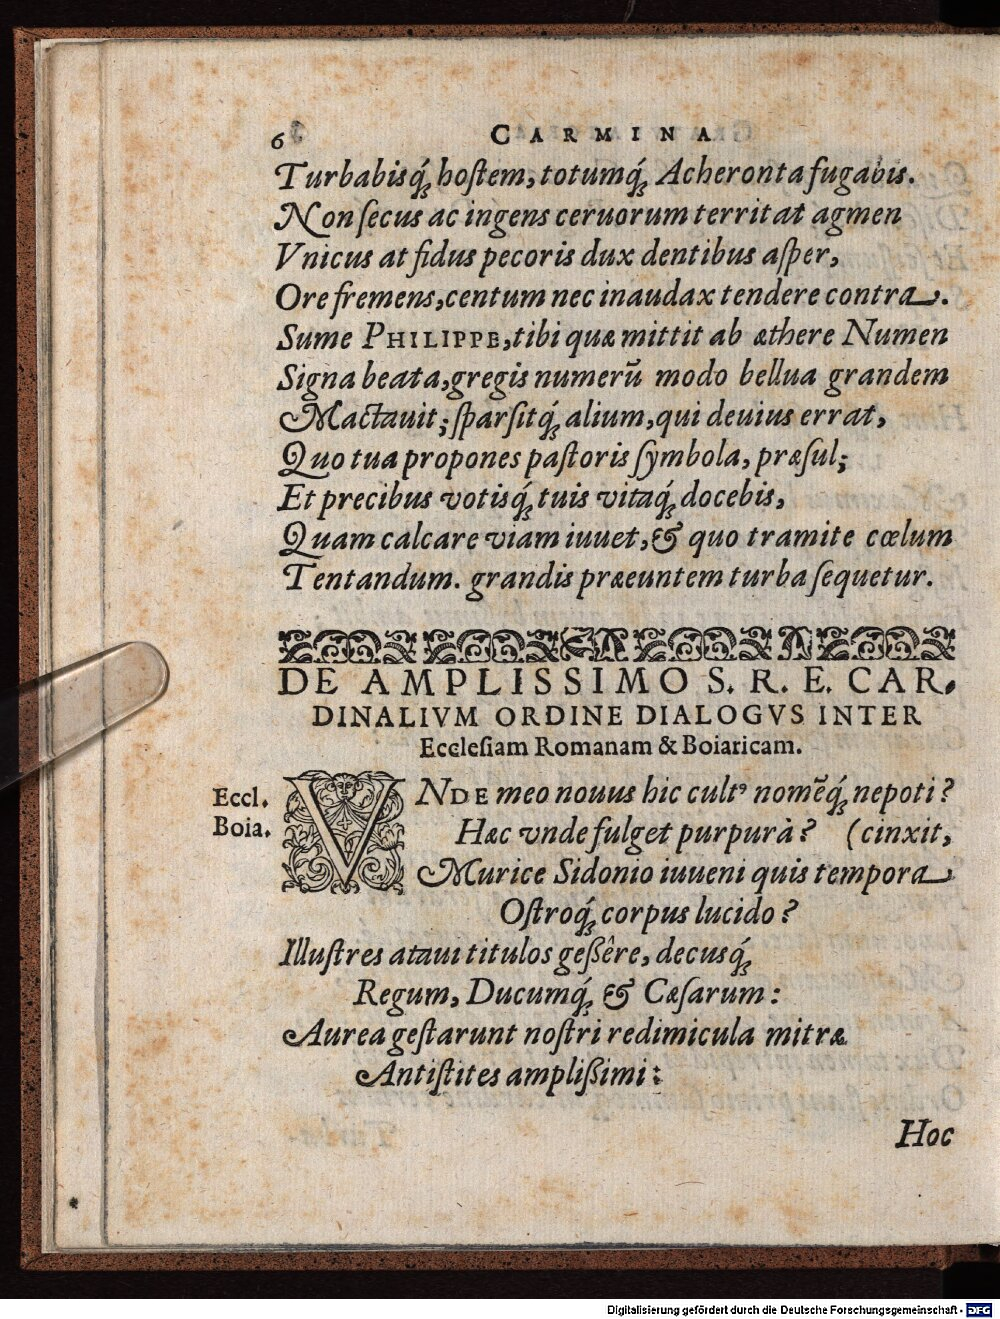 6 CARMINA
Turbabisq́; hoſtem, totumq́; Acheronta fugabis.
Non ſecus ac ingens ceruorum territat agmen
Vnicus at fidus pecoris dux dentibus aſper,
Ore fremens, centum nec inaudax tendere contra.
Sume PHILIPPE, tibi quæ mittit ab æthere Numen
Signa beata, gregis numerũ modo bellua grandem
Mactauit; ſparſitq́; alium, qui deuius errat,
Quo tua propones paſtoris ſymbola, præſul;
Et precibus votisq́; tuis vitaq́; docebis,
Quam calcare viam iuuet, & quo tramite cœlum
Tentandum. grandis præeuntem turba ſequetur.
DE AMPLISSIMO S. R. E. CAR-
DINALIVM ORDINE DIALOGVS INTER
Eccleſiam Romanam & Boiaricam.
Eccl. VNDE meo nouus hic cultꝰ nomẽq́; nepoti?
Boia. Hæc vnde fulget purpurà? (cinxit,
Murice Sidonio iuueni quis tempora
Oſtroq́; corpus lucido?
Illuſtres ataui titulos geßêre, decusq́;
Regum, Ducumq́; & Cæſarum:
Aurea geſtarunt noſtri redimicula mitræ
Antiſtites amplißimi:
Hoc
Digitalisierung gefördert durch die Deutsche Forschungsgemeinschaft - DFG